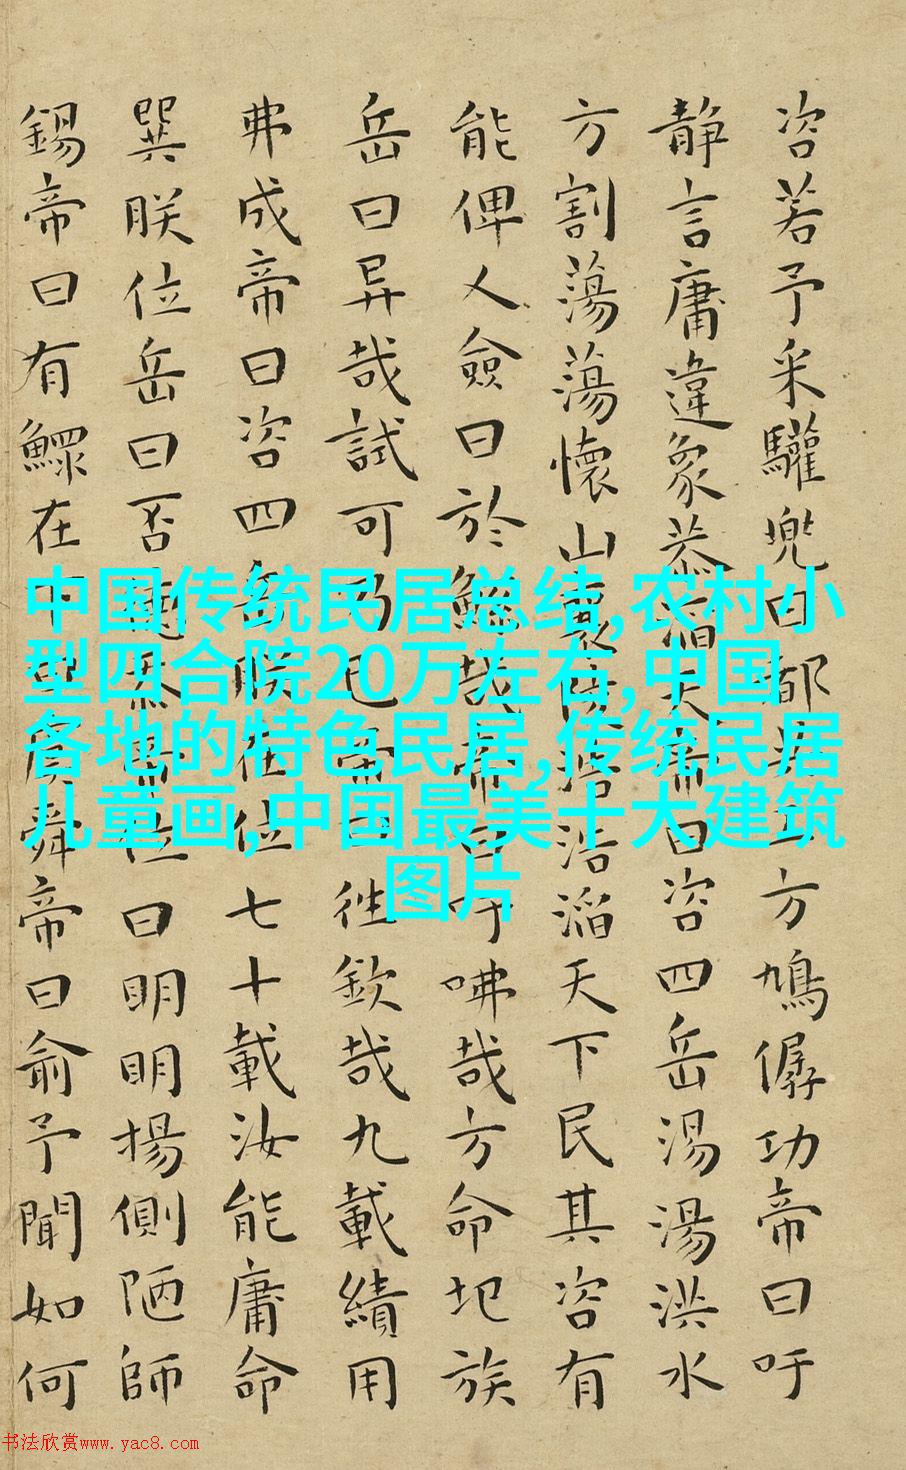 咨若予采驩兜曰都共工方鳩僝功帝曰吁
靜言庸違象恭滔天帝曰咨四岳湯湯洪水
方割蕩蕩懷山襄陵浩浩滔天下民其咨有
能俾乂僉曰於鯀哉帝曰吁咈哉方命圮族
岳曰异哉試可乃已帝曰往欽哉九載績用
弗成帝曰咨四岳朕在位七十載汝能庸命
巽朕位岳曰否德忝帝位曰明明揚側陋師
錫帝曰有鰥在下曰虞舜帝曰俞予聞如何
中国传统民居总结,农村小
型四合院20万左右,中国
各地的特色民居,传统民居
儿童画,中国最美十大建筑
图片
书法欣赏www.yac8.com